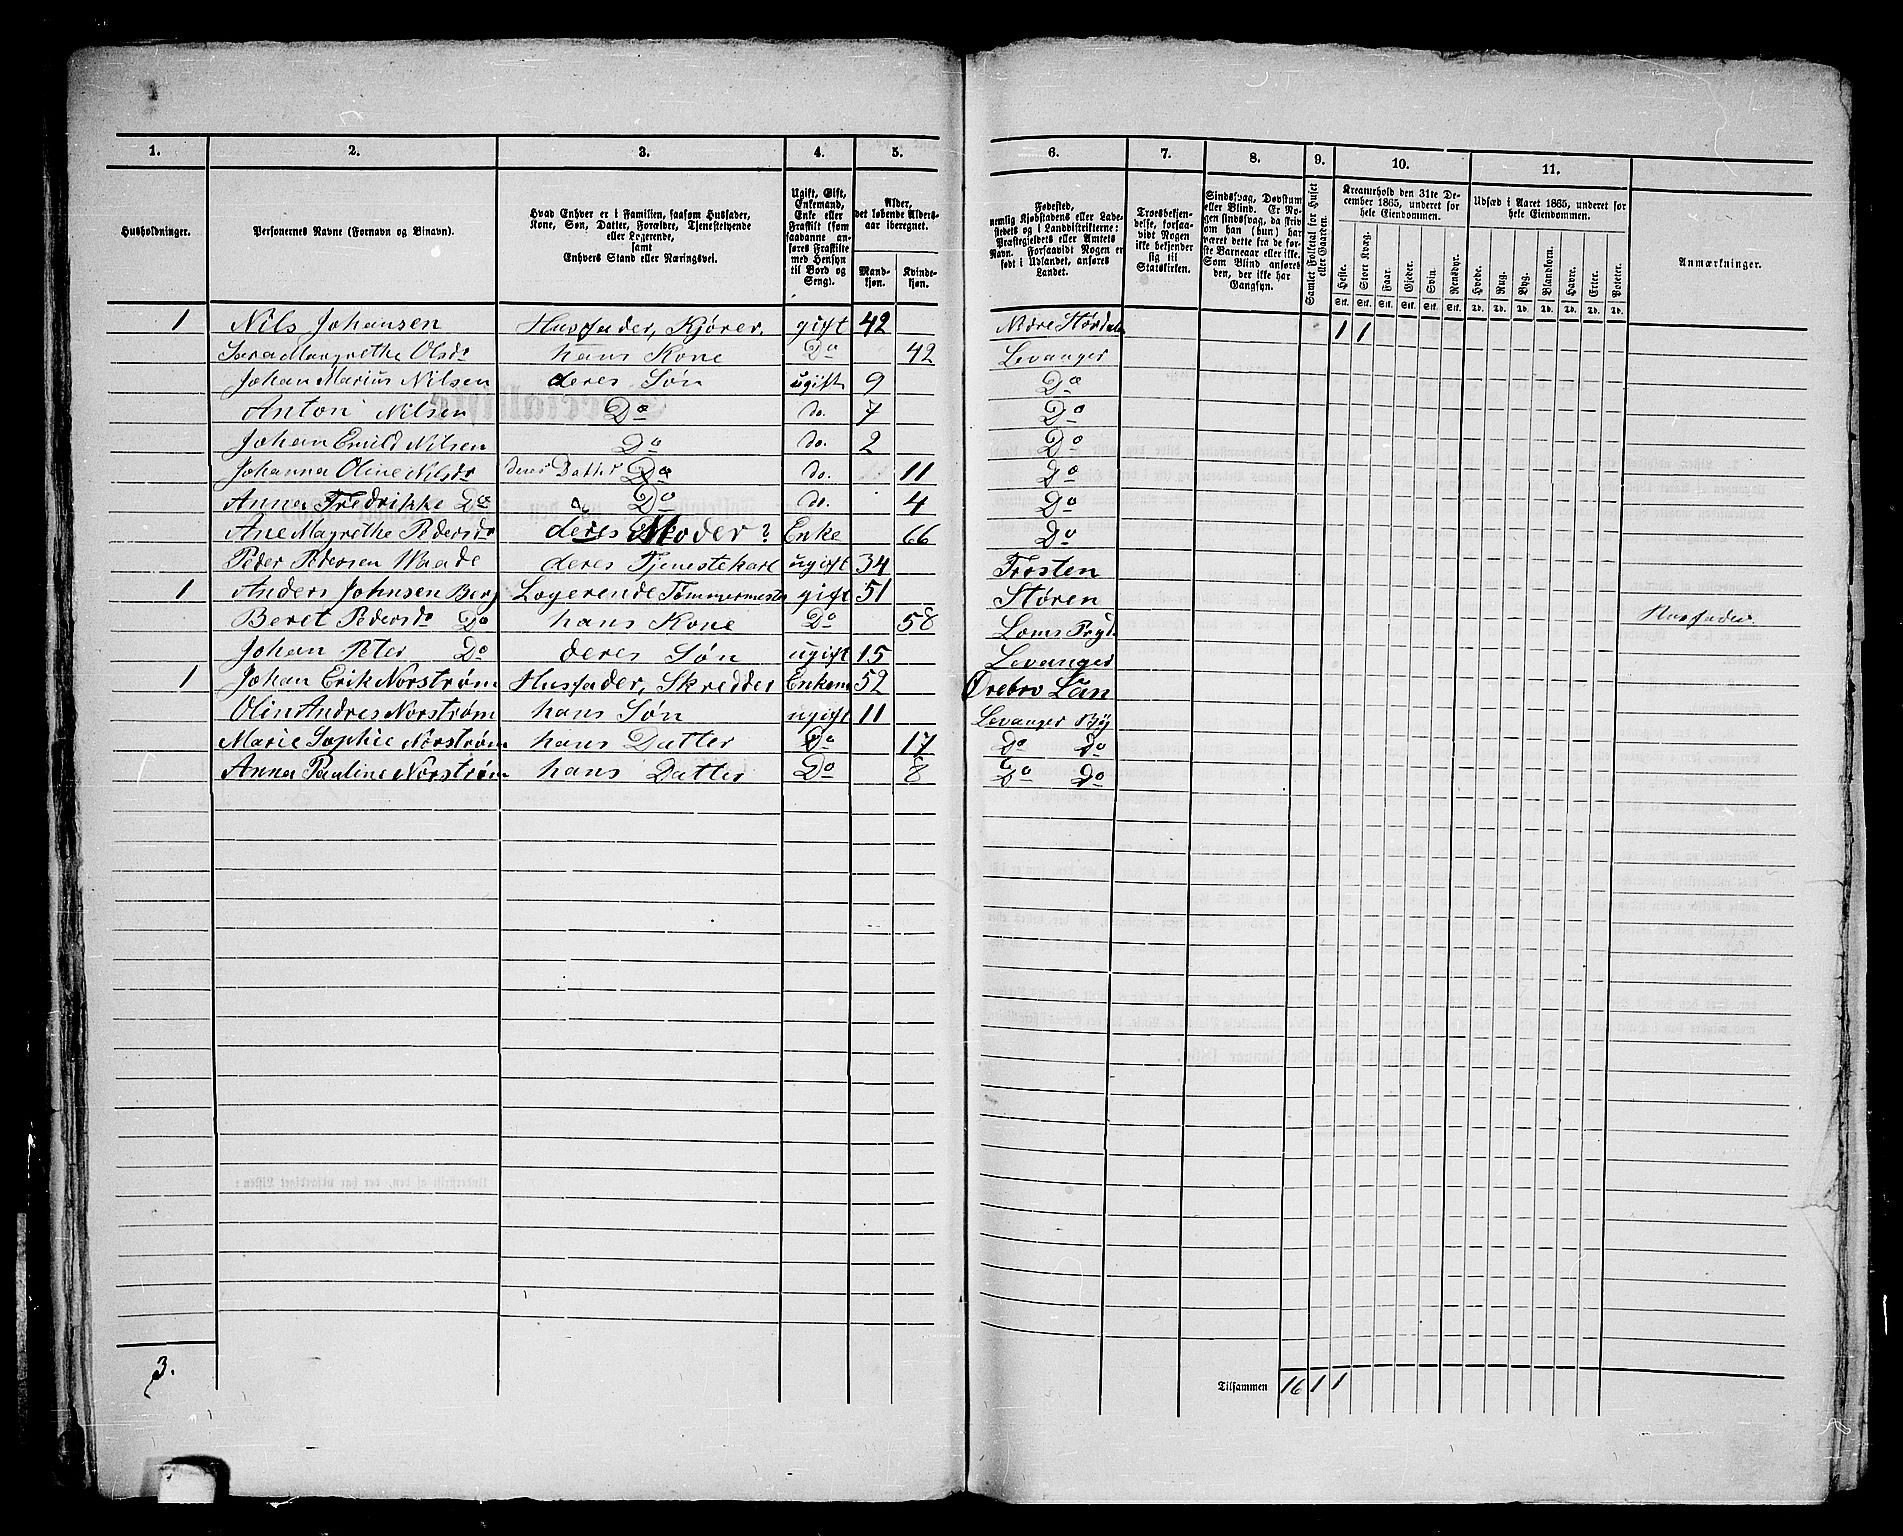 1. 2. 3. 4. 5. 6. 7. 8. 9. 10. 11.
Husholdninger.
Personernes Navne (Fornavn og Binavn).
Hvad Enhver er i Familien, saasom Husfader,
Kone, Søn, Datter, Forældre, Tjenestetyende
eller Logerende,
samt
Enhvers Stand eller Næringsvei.
Ugift, Gift,
Enkemand,
Enke eller
Fraskilt (som
saadanne an-
føres Fraskilte
med Hensyn
til Bord og
Seng).
Alder,
det løbende Alders-
aar iberegnet.
Mand-
kjøn.
Kvinde-
kjøn.
Fødested,
nemlig Kjøbstadens eller Lade-
stedets og i Landdistrikterne:
Præstegjeldets eller Amtets
Navn. Forsaavidt Nogen er
født i Udlandet, anføres
Landet.
Troesbekjen-
delse, forsaa-
vidt Nogen
ikke bekjender
sig til
Statskirken.
Sindssvag, Døvstum
eller Blind. Er No-
gen sindssvag, da Trin
om han (hun) har
været dette fra de før-
ste Barneaar eller ikke.
Som Blind anføres
den, der ikke har
Gangsyn.
Samlet Folketal for Huset
eller Gaarden.
Kreaturhold den 31te De-
cember 1865, underet for
hele Eiendommen.
Heste. Stort Kvæg. Faar. Gjeder. Svin. Rensdyr.
Stk. Stk. Stk. Stk. Stk. Stk.
Udsæd i Aaret 1865, underet for
hele Eiendommen.
Hvede. Rug. Byg. Blandkorn. Havre. Erter. Poteter.
Td. Td. Td. Td. Td. Td. Td.
Anmærkninger.
1 Nils Johansen Husfader, Kjører, gift 42 Nedre Størdalen 1 1
Sara Margrethe Olsdr hans Kone Do 42 Levanger
Johan Marius Nilsen deres Søn ugift 9 Do
Anton Nilsen Do do. 7 Do
Johan Emild Nilsen Do do. 2 Do
Johanna Oline Nilsdr deres Datter Do do. 11 Do
Anna Fredrikke Do Do do. 4 Do
Ane Magrethe Pedersdr deres Moder ? Enke 66 Do
Peder Pedersen Waade deres Tjenestekarl ugift 34 Frosten
1 Anders Johnsen Berg Logerende Tømmermester gift 51 Støren
Beret Pedersdr Do hans Kone Do 58 Loms Prgd. Husfader
Johan Peter Do deres Søn ugift 15 Levanger
1 Johan Erik Norstrøm Husfader, Skredder Enkem 52 Ørebro Län
Olin Andres Norstrøm hans Søn ugift 11 Levanger By
Marie Sophie Norstrøm hans Datter Do 17 Do do
Anna Pauline Norstrøm hans Datter Do 8 Do do
3.
Tilsammen 16 1 1